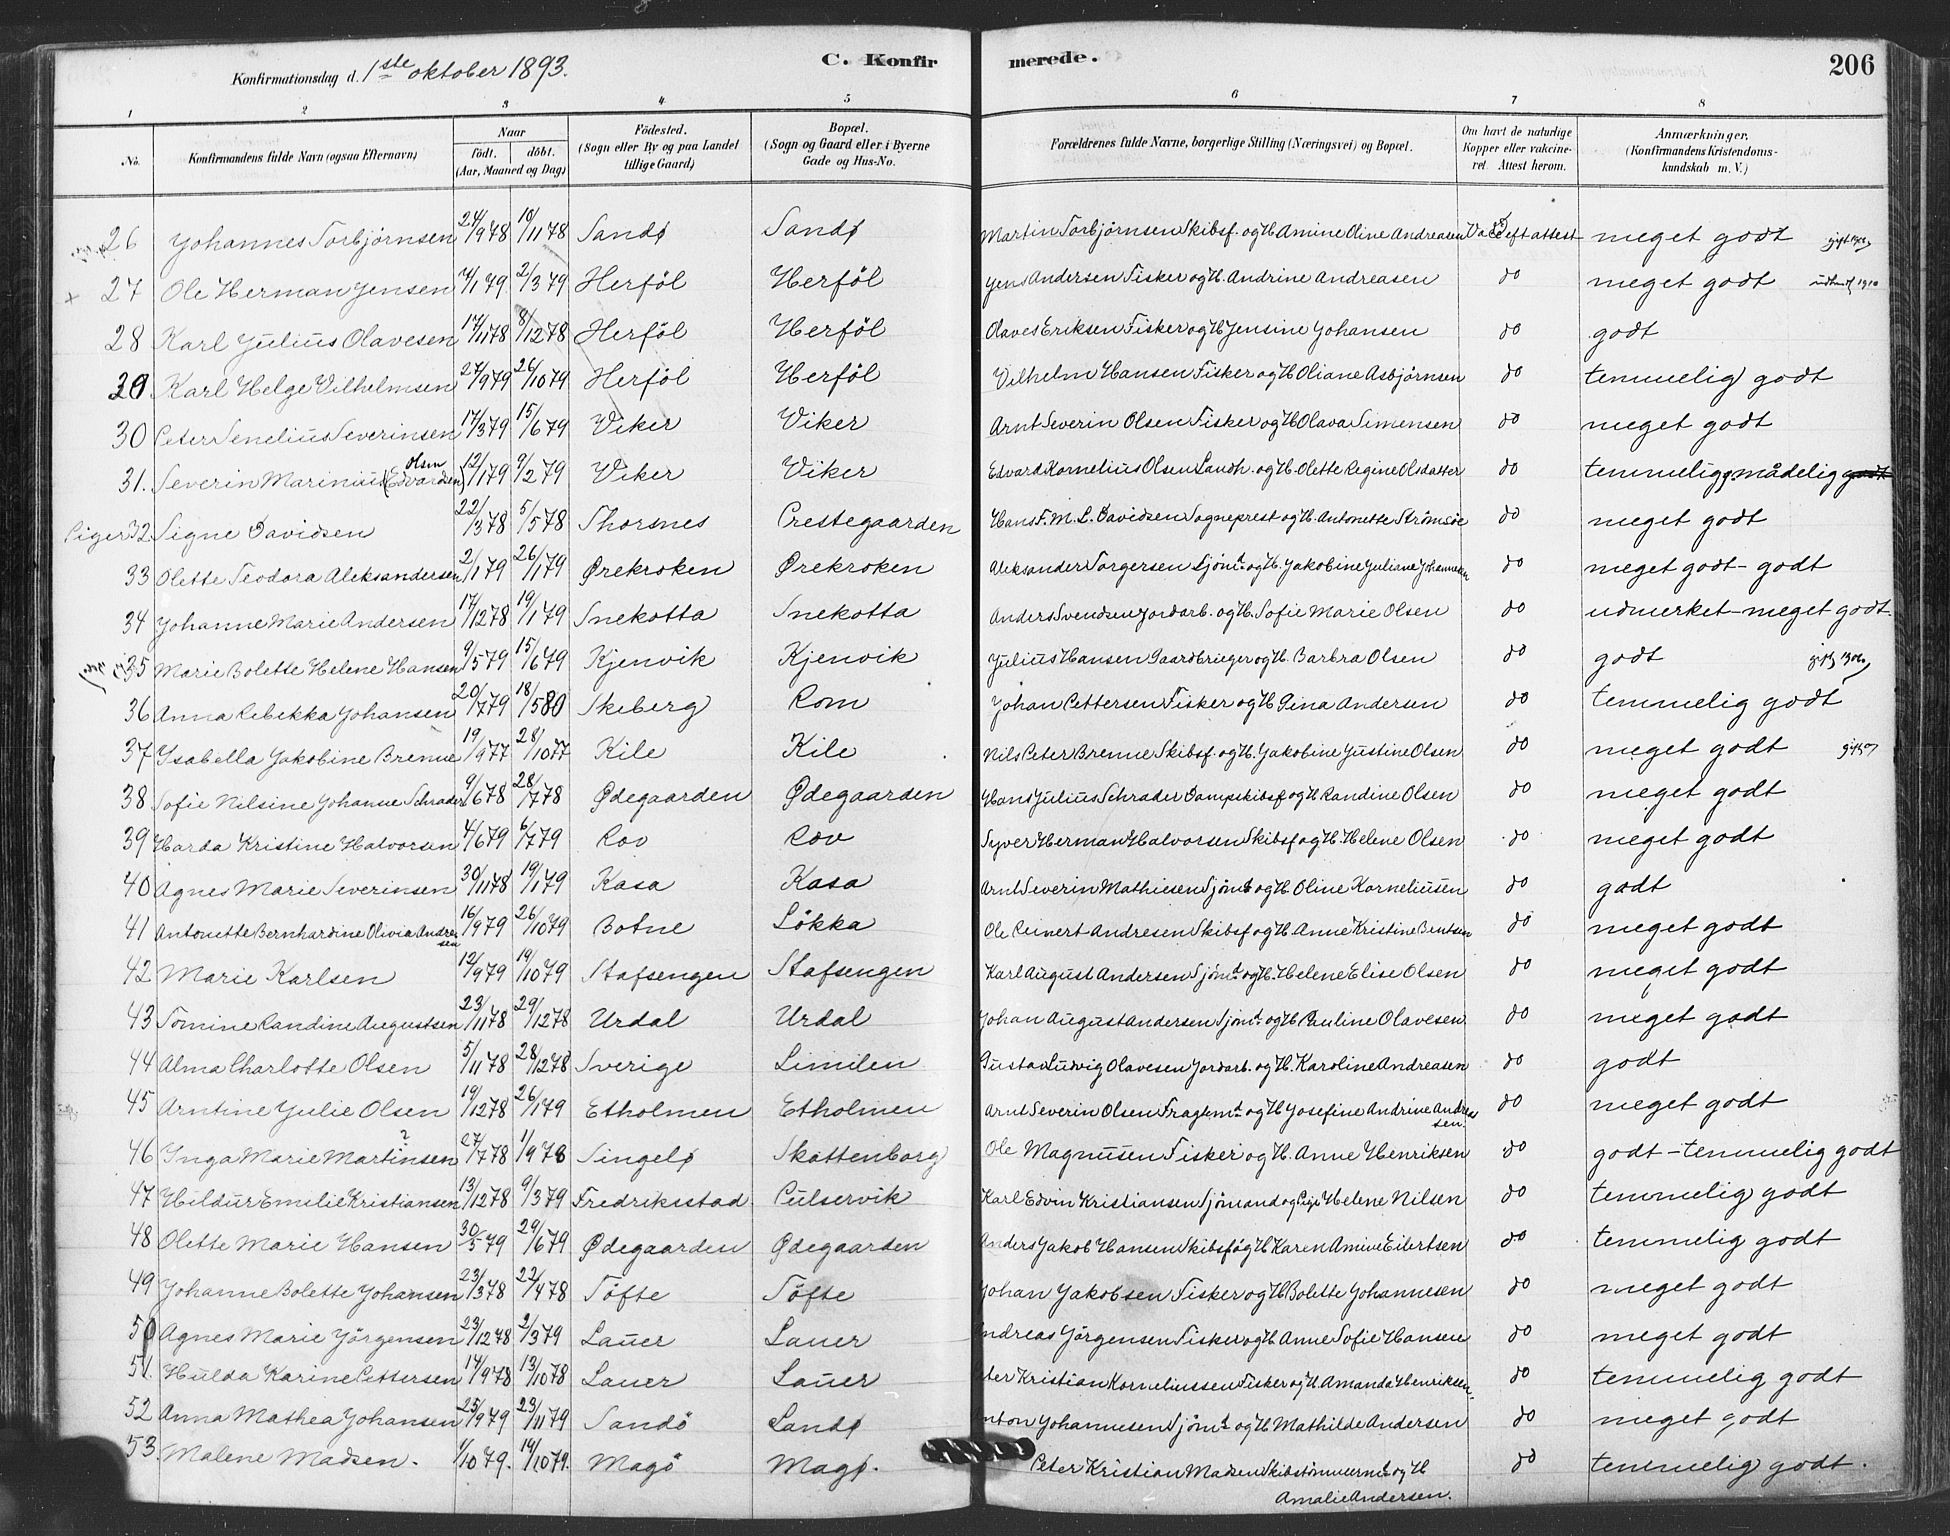 Konfirmationsdag d. 1ste oktober 1893. C. Konfir merede. 206
1 2 3 4 5 6 7 8
No. Konfirmandens fulde Navn (ogsaa Efternavn) Naar födt. döbt. (Aar, Maaned og Dag) Födested. (Sogn eller By og paa Landet tillige Gaard) Bopæl. (Sogn og Gaard eller i Byerne Gade og Hus-No. Forældrenes fulde Navne, borgerlige Stilling (Næringsvei) og Bopæl. Om havt de naturlige Kopper eller vakcineret. Attest herom. Anmærkninger. (Konfirmandens Kristendomskundskab m. V.)
26 Johannes Torbjørnsen 24/9 78 10/11 78 Sandø Sandø Martin Torbjørnsen Skibsf. og H. Amine Oline Andreasen Vacc. eft attest meget godt
27 Ole Herman Jensen 4/1 79 2/3 79 Herföl Herföl Jens Andersen Fisker og H. Andrine Andreasen do meget godt
28 Karl Julius Olavesen 14/11 78 8/12 78 Herföl Herföl Olaves Eriksen Fisker og H Jensine Johansen do godt
29 Karl Helge Vilhelmsen 27/9 79 26/10 79 Herföl Herföl Vilhelm Hansen Fisker og H Oliane Asbjørnsen do temmelig godt
30 Peter Senelius Severinsen 17/3 79 15/6 79 Viker Viker Arnt Severin Olsen Fisker og H Olava Simensen do meget godt
31. Severin Marinius (Edvardsen) Olsen 12/1 79 9/2 79 Viker Viker Edvard Kornelius Olsen Landh. og H. Olette Regine Olsdatter do temmelig mådelig godt
Piger 32 Signe Davidsen 22/3 78 5/5 78 Thorsnes Prestegaarden Hans F. M. L. Davidsen Sogneprest og H. Antonette Strömsöe do meget godt
33 Olette Teodora Aleksandersen 2/1 79 26/1 79 Ørekroken Ørekroken Aleksander Torgersen Sjömd og H. Jakobine Juliane Johannesen do meget godt - godt
34 Johanne Marie Andersen 17/12 78 19/1 79 Snekotta Snekotta Anders Svendsen Jordarb. og H. Sofie Marie Olsen do udmerket - meget godt.
35 Marie Bolette Helene Hansen 9/5 79 15/6 79 Kjenvik Kjenvik Julius Hansen Gaardbruger og H. Barbra Olsen do godt
36 Anna Rebekka Johansen 20/7 79 18/5 80 Skeberg Rom Johan Pettersen Fisker og H Gina Andersen do temmelig godt
37 Isabella Jakobine Brenne 19/9 77 28/10 77 Kile Kile Nils Peter Brenne Skibsf. og H. Jakobine Justine Olsen do meget godt
38 Sofie Nilsine Johanne Schrader 9/6 78 28/7 78 Ødegaarden Ødegaarden Hans Julius Schrader Dampskibsf og H Randine Olsen do meget godt
39 Harda Kristine Halvorsen 4/6 79 6/7 79 Rov Rov Syver Herman Halvorsen Skibsf og H. Helene Olsen do meget godt
40 Agnes Marie Severinsen 30/11 78 19/1 79 Kasa Kasa Arnt Severin Mathisen Sjömd og H Oline Korneliusen do godt
41 Antonette Bernhardine Olivia Andresen 16/9 79 26/10 79 Botne Lökka Ole Reinert Andresen Skibsf og H. Anne Kristine Bentsen do meget godt
42 Marie Karlsen 12/9 79 19/10 79 Stafsengen Stafsengen Karl August Andersen Sjömd og H. Helene Elise Olsen do meget godt
43 Tomine Randine Augustsen 23/11 78 29/12 78 Urdal Urdal Johan August Andersen Sjömd og H Pauline Olavesen do meget godt
44 Alma Charlotte Olsen 5/11 78 28/12 78 Sverige Limilen Gustav Ludvig Olavesen Jordarb. og H. Karoline Andreasen do godt
45 Arntine Julie Olsen 19/12 78 26/1 79 Etholmen Etholmen Arnt Severin Olsen Fragtemd og H Josefine Andrine Andreasen do meget godt
46 Inga Marie Martinsen ? 27/7 78 1/9 78 Singelø Skottenborg Ole Magnusen Fisker og H. Anne Henriksen do godt - temmelig godt
47 Hildur Emelie Kristiansen 13/12 78 9/3 79 Fredriksstad Pulservik Karl Edvin Kristiansen Sjömand og Pige Helene Nilsen do temmelig godt
48 Olette Marie Hansen 30/5 79 29/6 79 Ødegaarden Ødegaarden Anders Jakob Hansen Skibsf og H Karen Amine Eilertsen do temmelig godt
49 Johanne Bolette Johansen 23/3 78 22/4 78 Töfte Töfte Johan Jakobsen Fisker og H Bolette Johannesen do meget godt
50 Agnes Marie Jörgensen 23/12 78 2/3 79 Lauer Lauer Andreas Jörgensen Fisker og H Anne Sofie Hansen do meget godt
51. Hulda Karine Pettersen 14/9 78 13/10 78 Lauer Lauer Peter Kristian Korneliussen Fisker og H. Amanda Henriksen do temmelig godt
52 Anna Mathea Johansen 25/9 79 23/11 79 Sandö Sandø Anton Johannesen Sjömd og H Mathilde Andersen do meget godt
53. Malene Madsen. 1/10 79. 19/10 79. Magö Magø. Peter Kristian Madsen Skibstömmermd og H Amalie Andersen. do temmelig godt.